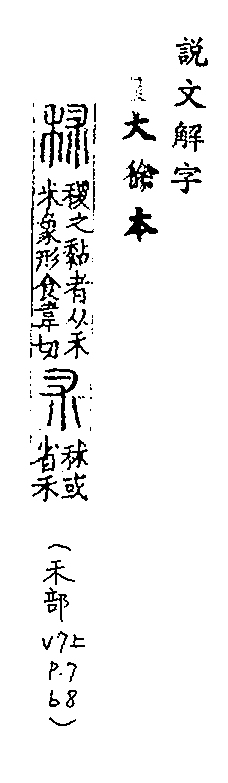 說文解字
大徐本
秫
稷之黏者从禾
朮象形食聿切
朮
秫或
省禾
（禾部
v7上
p.7
b8）